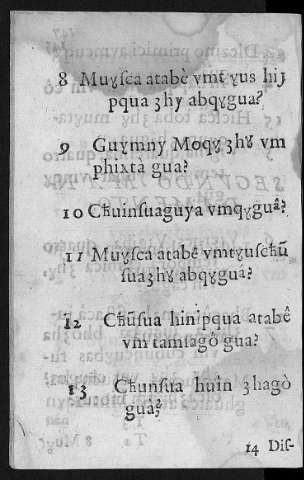 8 Muɣsca atabè vmtɣus hiȷ
pqua ʒhɣ abqɣgua?
9 Guɣmnɣ Moqɣ ʒhɣ vm
phixta gua?
10 Cħuinsuaguya vmqɣguâ?
11 Muɣsca atabê vmtɣuscħû
suaʒhɣ abqɣguâ?
12 Cħûsua hinipqua atabê
vm tamsagò gua?
13 Cħunsua huin ʒhagò
gua?
14 Dis-